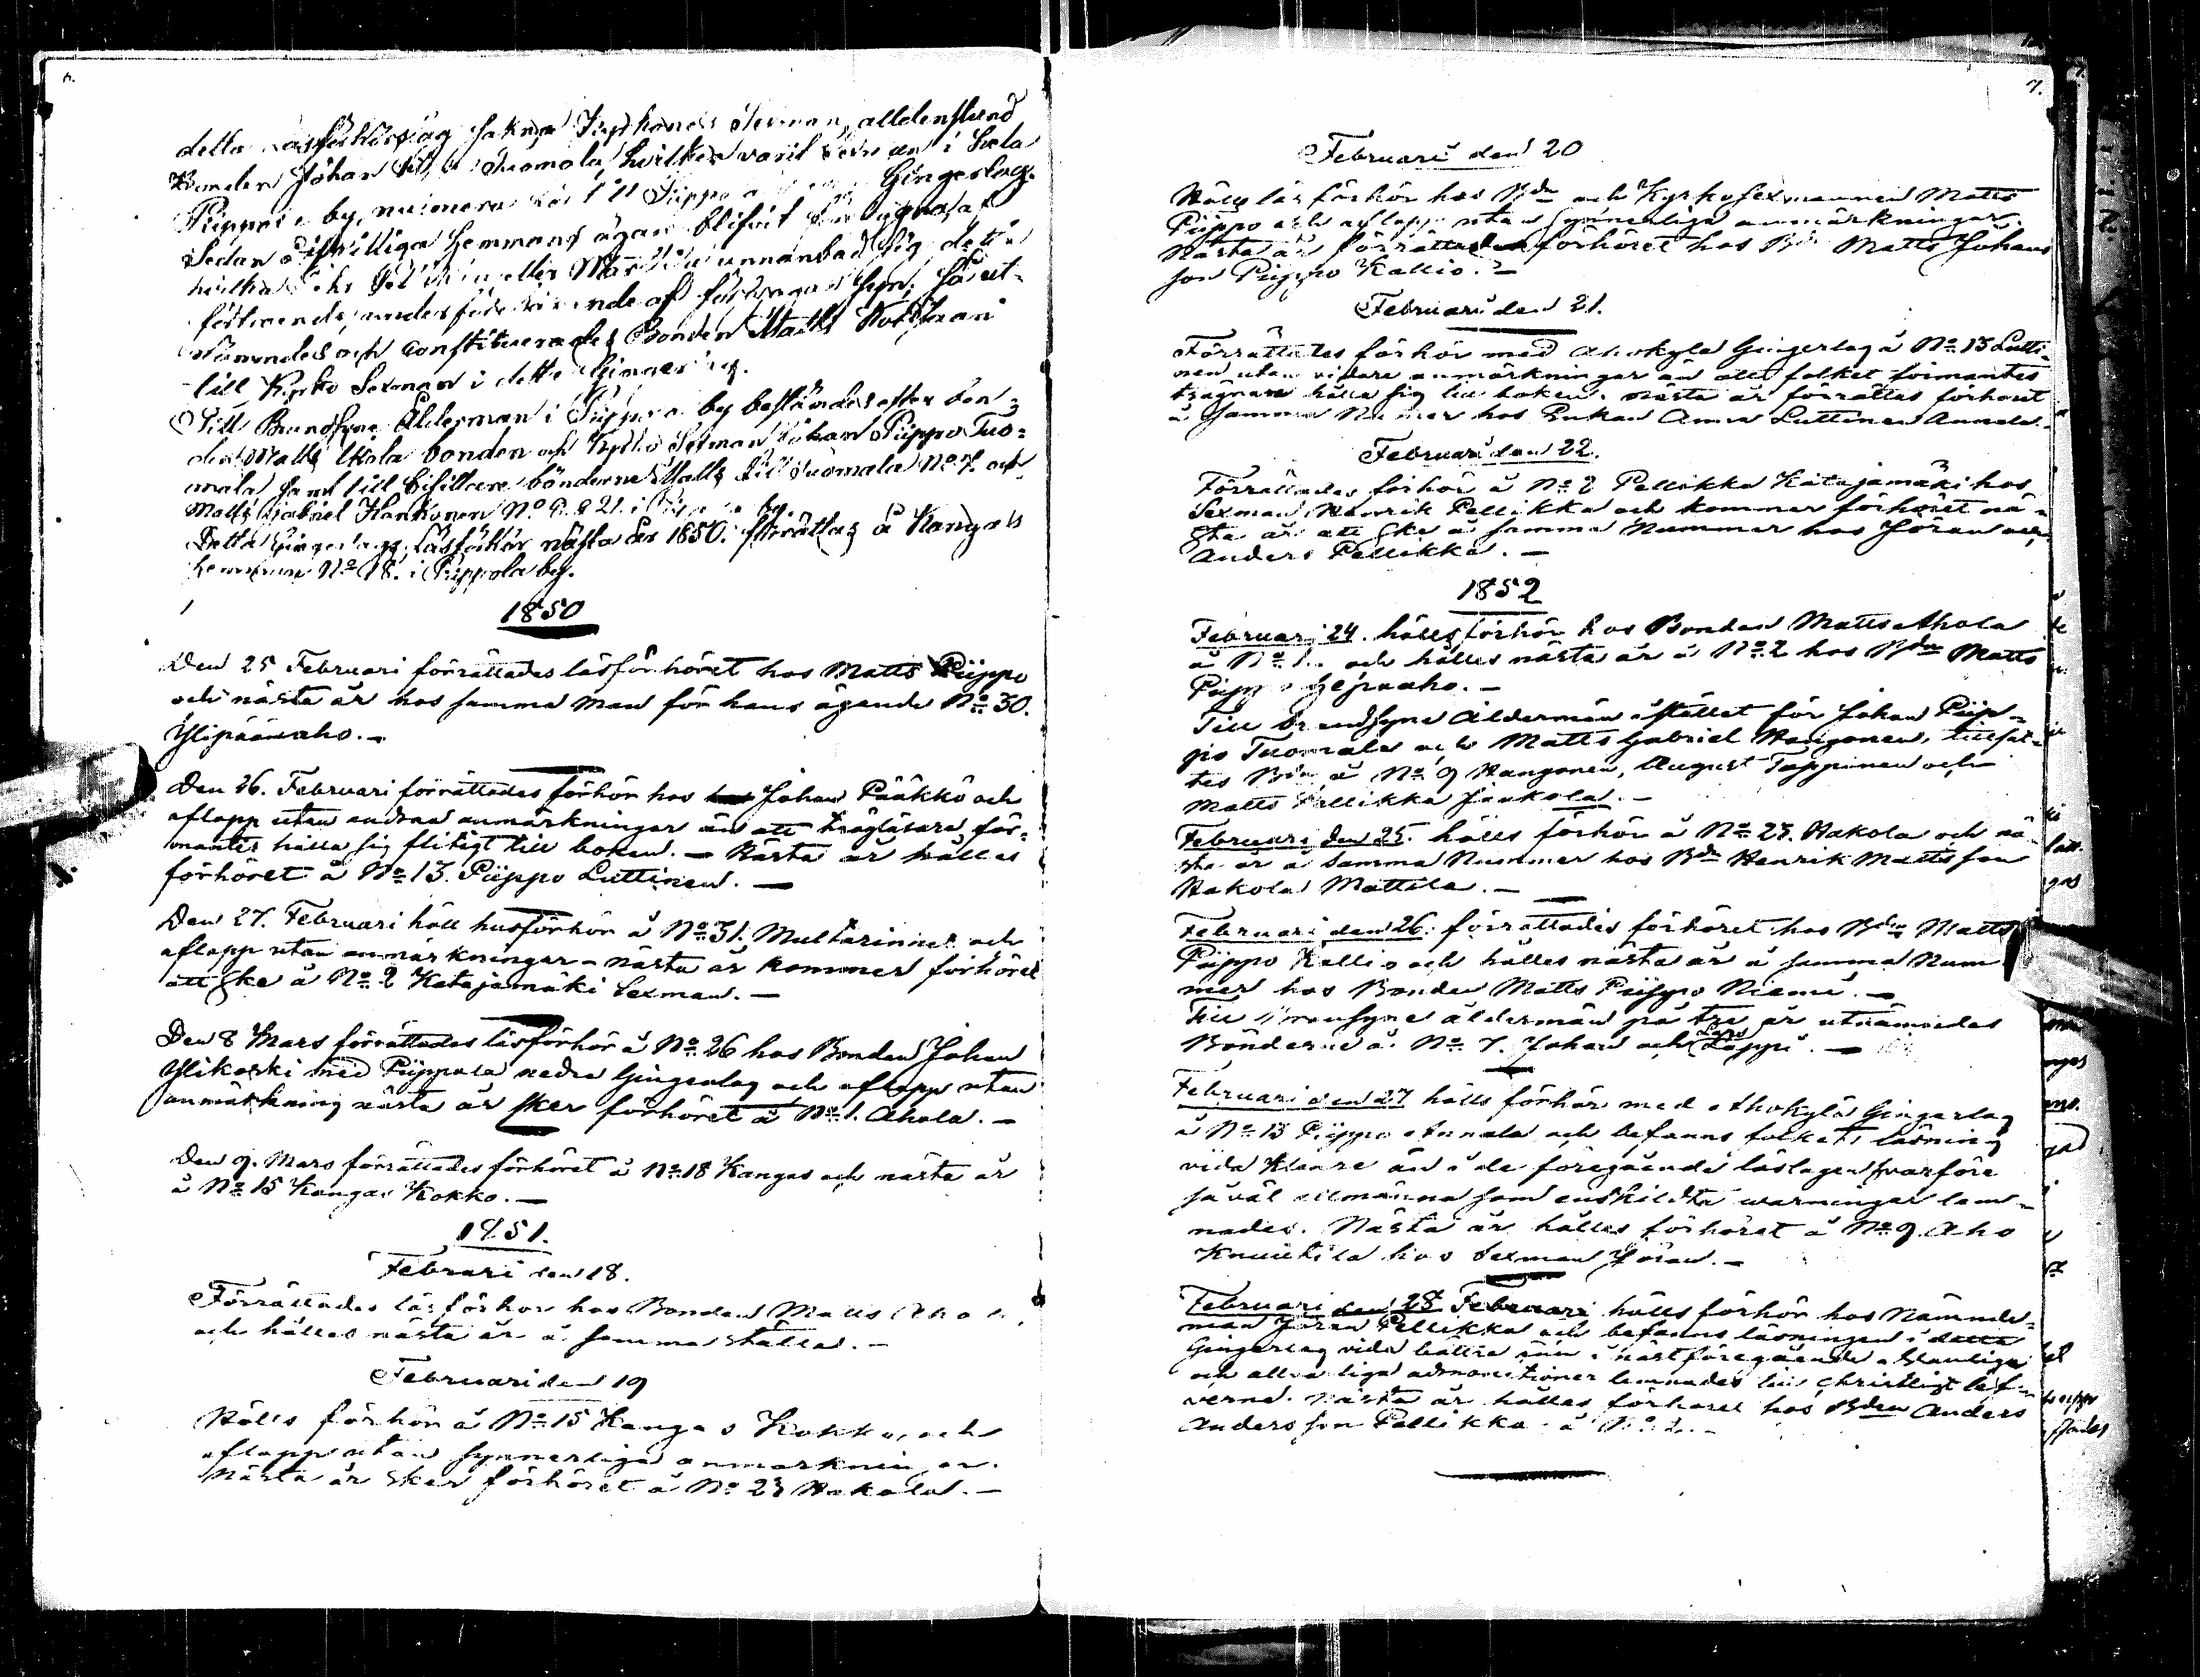 6.
detta läsförhörslag sakna Kyrkones Sexman, alldenstund
Bonden Johan Tuomala, hvilken varit Sexman i hela
Piippola by, numera till Piippola Gingerslag.
Sedan ägare blifvit
hvilka eller unnanbad sig detta
förtroende, undersöktes af
nämndes och constituerades Bonden Matts
till Kyrko Sexman i detta Gingerslag.
Till Brandsyne Ålderman i Piippola by beständes efter bon-
den Matts bonden och Kyrko Sexman Johan Piippo Tuo-
mala samt till bisittare bönderne Matts Tuomala No 7. och
Matts Gabriel Hankonen No 9. & 21. i Piippola by.
Detta Gingerlags läsförhör nästa år 1850. förrättas å Kangas
hemman No 18. i Piippola by.
1850
Den 25 Februari förrättades läsförhöret hos Matts Piippo
och nästa år hos samma man för hans ägande No 30.
Ylipäänaho. –
Den 26. Februari förrättades förhör hos Johan Pääkkö och
aflopp utan andra anmärkningar än att trögläsare för-
mantes hålla sig flitigt till boken. – Nästa år hålles
förhöret å No 13. Piippo Luttinen. –
Den 27. Februari höll husförhör å No 31. Multarinne och
aflopp utan anmärkningar – nästa år kommer förhöret
att ske å No 2 Katajamäki Sexman. –
Den 8 Mars förrättades läsförhör å No 26 hos Bonden Johan
Ylikoski med Piippola nedra Gingerlag och aflopp utan
anmärkning nästa år sker förhöret å No 1. Ahola. –
Den 9. Mars förrättades förhöret å No 18 Kangas och nästa år
å No 15 Kangas Kokko. –
1851.
Februari den 18.
Förrättades läsförhör hos Bonden Matts Ahola
och hålles nästa år å samma ställe. –
Februari den 19
Hölls förhör å No 15 Kangas Kokko, och
aflopp utan synnerliga anmärkningar.
Nästa år sker förhöret å No 23 Hakola. –
7.
Februari den 20
Hölls läsförhör hos Bdn och Kyrkosexmannen Matts
Piippo och aflopp utan synnerliga anmärkningar.
Nästa år förrättas förhöret hos Bdn Matts Johans
son Piippo Kallio. –
Februari den 21.
Förrättades förhör med Ahokylä Gingerlag å No 13 Lutti-
nen utan vidare anmärkningar än att folket förmantes
trägnare hålla sig till boken. nästa år förrättas förhöret
å samma Nummer hos Enkan Anna Luttinen Annala.
Februari den 22.
Förrättades förhör å No 2 Pellikka Katajamäki hos
Sexman Henrik Pellikka och kommer förhöret nä-
sta år att ske å samma Nummer hos Jöran och
Anders Pellikka. –
1852
Februari 24. hölls förhör hos Bonden Matts Ahola
å No 1. och hålles nästa år å No 2 hos Bdn Matts
Piippo –
Till brandsyne Åldermän i stället för Johan Piip-
po Tuomala och Matts Gabriel Hangonen, tillsat-
tes Bdn å No 9 Hangonen, August Tappinen och
Matts Pellikka Jaakola. –
Februari den 25. hölls förhör å No 23. Hakola och nä-
sta år å samma Nummer hos Bdn Henrik Mattsson
Hakola Mattila. –
Februari den 26. förrättades förhöret hos Bdn Matts
Piippo Kallio och hålles nästa år å samma Num
mer hos Bonden Matts Piippo Niemi. –
Till brandsyne åldermän på tre år utnämndes
Bönderne å No 7. Johan och Lars Lappi. –
Februari den 27 hölls förhör med Ahokylä Gingerlag
å No 13 Piippo Annala och befanns folkets läsning
vida klenare än i de föregående läslagen hvarföre
såväl allmänna som enskildta warningar lem-
nades. Nästa år hålles förhöret å No 9. Aho
Knuutila hos Sexman Jöran. –
Februari den 28 Februari hölls förhör hos Nämnde-
man Jöran Pellikka och befanns läsningen i detta
Gingerlag vida bättre än i nästföregående
och allvarliga admonitioner lemnades till christligt lef-
verne. Nästa år hålles förhöret hos Bdn Anders
Andersson Pellikka å No 2. –